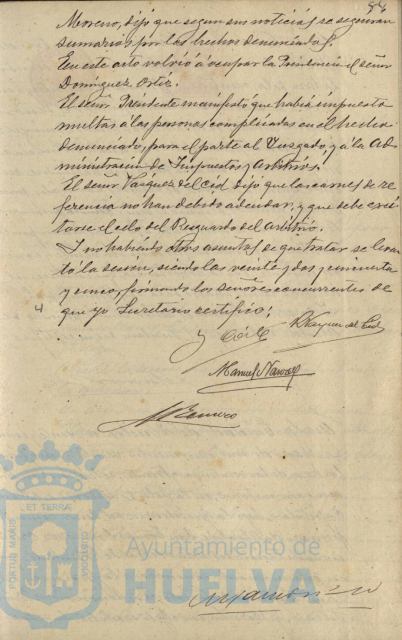 84
Moreno, dijo que segun sus noticias se seguiran
sumarios por los hechos denunciados.
En este acto volvió á ocupar la Presidencia el señor
Dominguez Ortiz.
El señor Presidente manifestó que habia impuesto
multas á las personas complicadas en el hecho
denunciado, para el parte al Juzgado y á la Ad-
ministración de Impuestos y Arbitrios.
El señor Vazquez del Cid dijo que las carnes de re-
ferencia no han debido adeudar, y que debe exci-
tarse el celo del Resguardo del Arbitrio.
Y no habiendo otros asuntos de que tratar se levan-
tó la sesión, siendo las veinte y dos y cincuenta
y cinco, firmando los señores concurrentes de
que yo Secretario certifico;
Vazquez del Cid
Manuel Narvaez
PORTUS MARIS
ET TERRAE
CUSTODIA
Ayuntamiento de
HUELVA